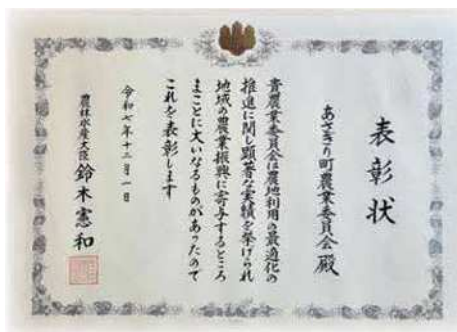 表彰状
あさぎり町農業委員会殿
貴農業委員会は農地利用の最適化の
推進に関し顕著な実績を挙げられ
地域の農業振興に寄与するところ
まことに大いなるものがあったので
これを表彰します
令和七年十二月一日
農林水産大臣 鈴木憲和